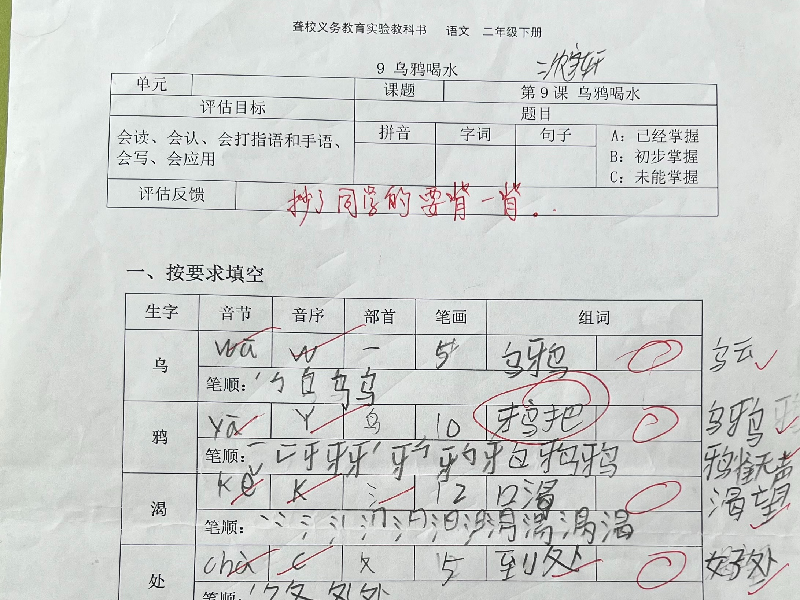 聋校义务教育实验教科书 语文 二年级下册
9 乌鸦喝水
单元 课题 第9课 乌鸦喝水
评估目标 题目
会读、会认、会打指语和手语、会写、会应用 拼音 字词 句子 A：已经掌握
B：初步掌握
C：未能掌握
评估反馈 抄了同学的要背一背。
一、按要求填空
生字 音节 音序 部首 笔画 组词
乌 wū w 一 5 乌鸦 乌云
笔顺：
鸦 yā Y 鸟 10 乌鸦
笔顺： 鸦雀无声
渴 kě K 氵 12 口渴 渴望
笔顺：
处 chù c 夂 5 到处 好处
笔顺：